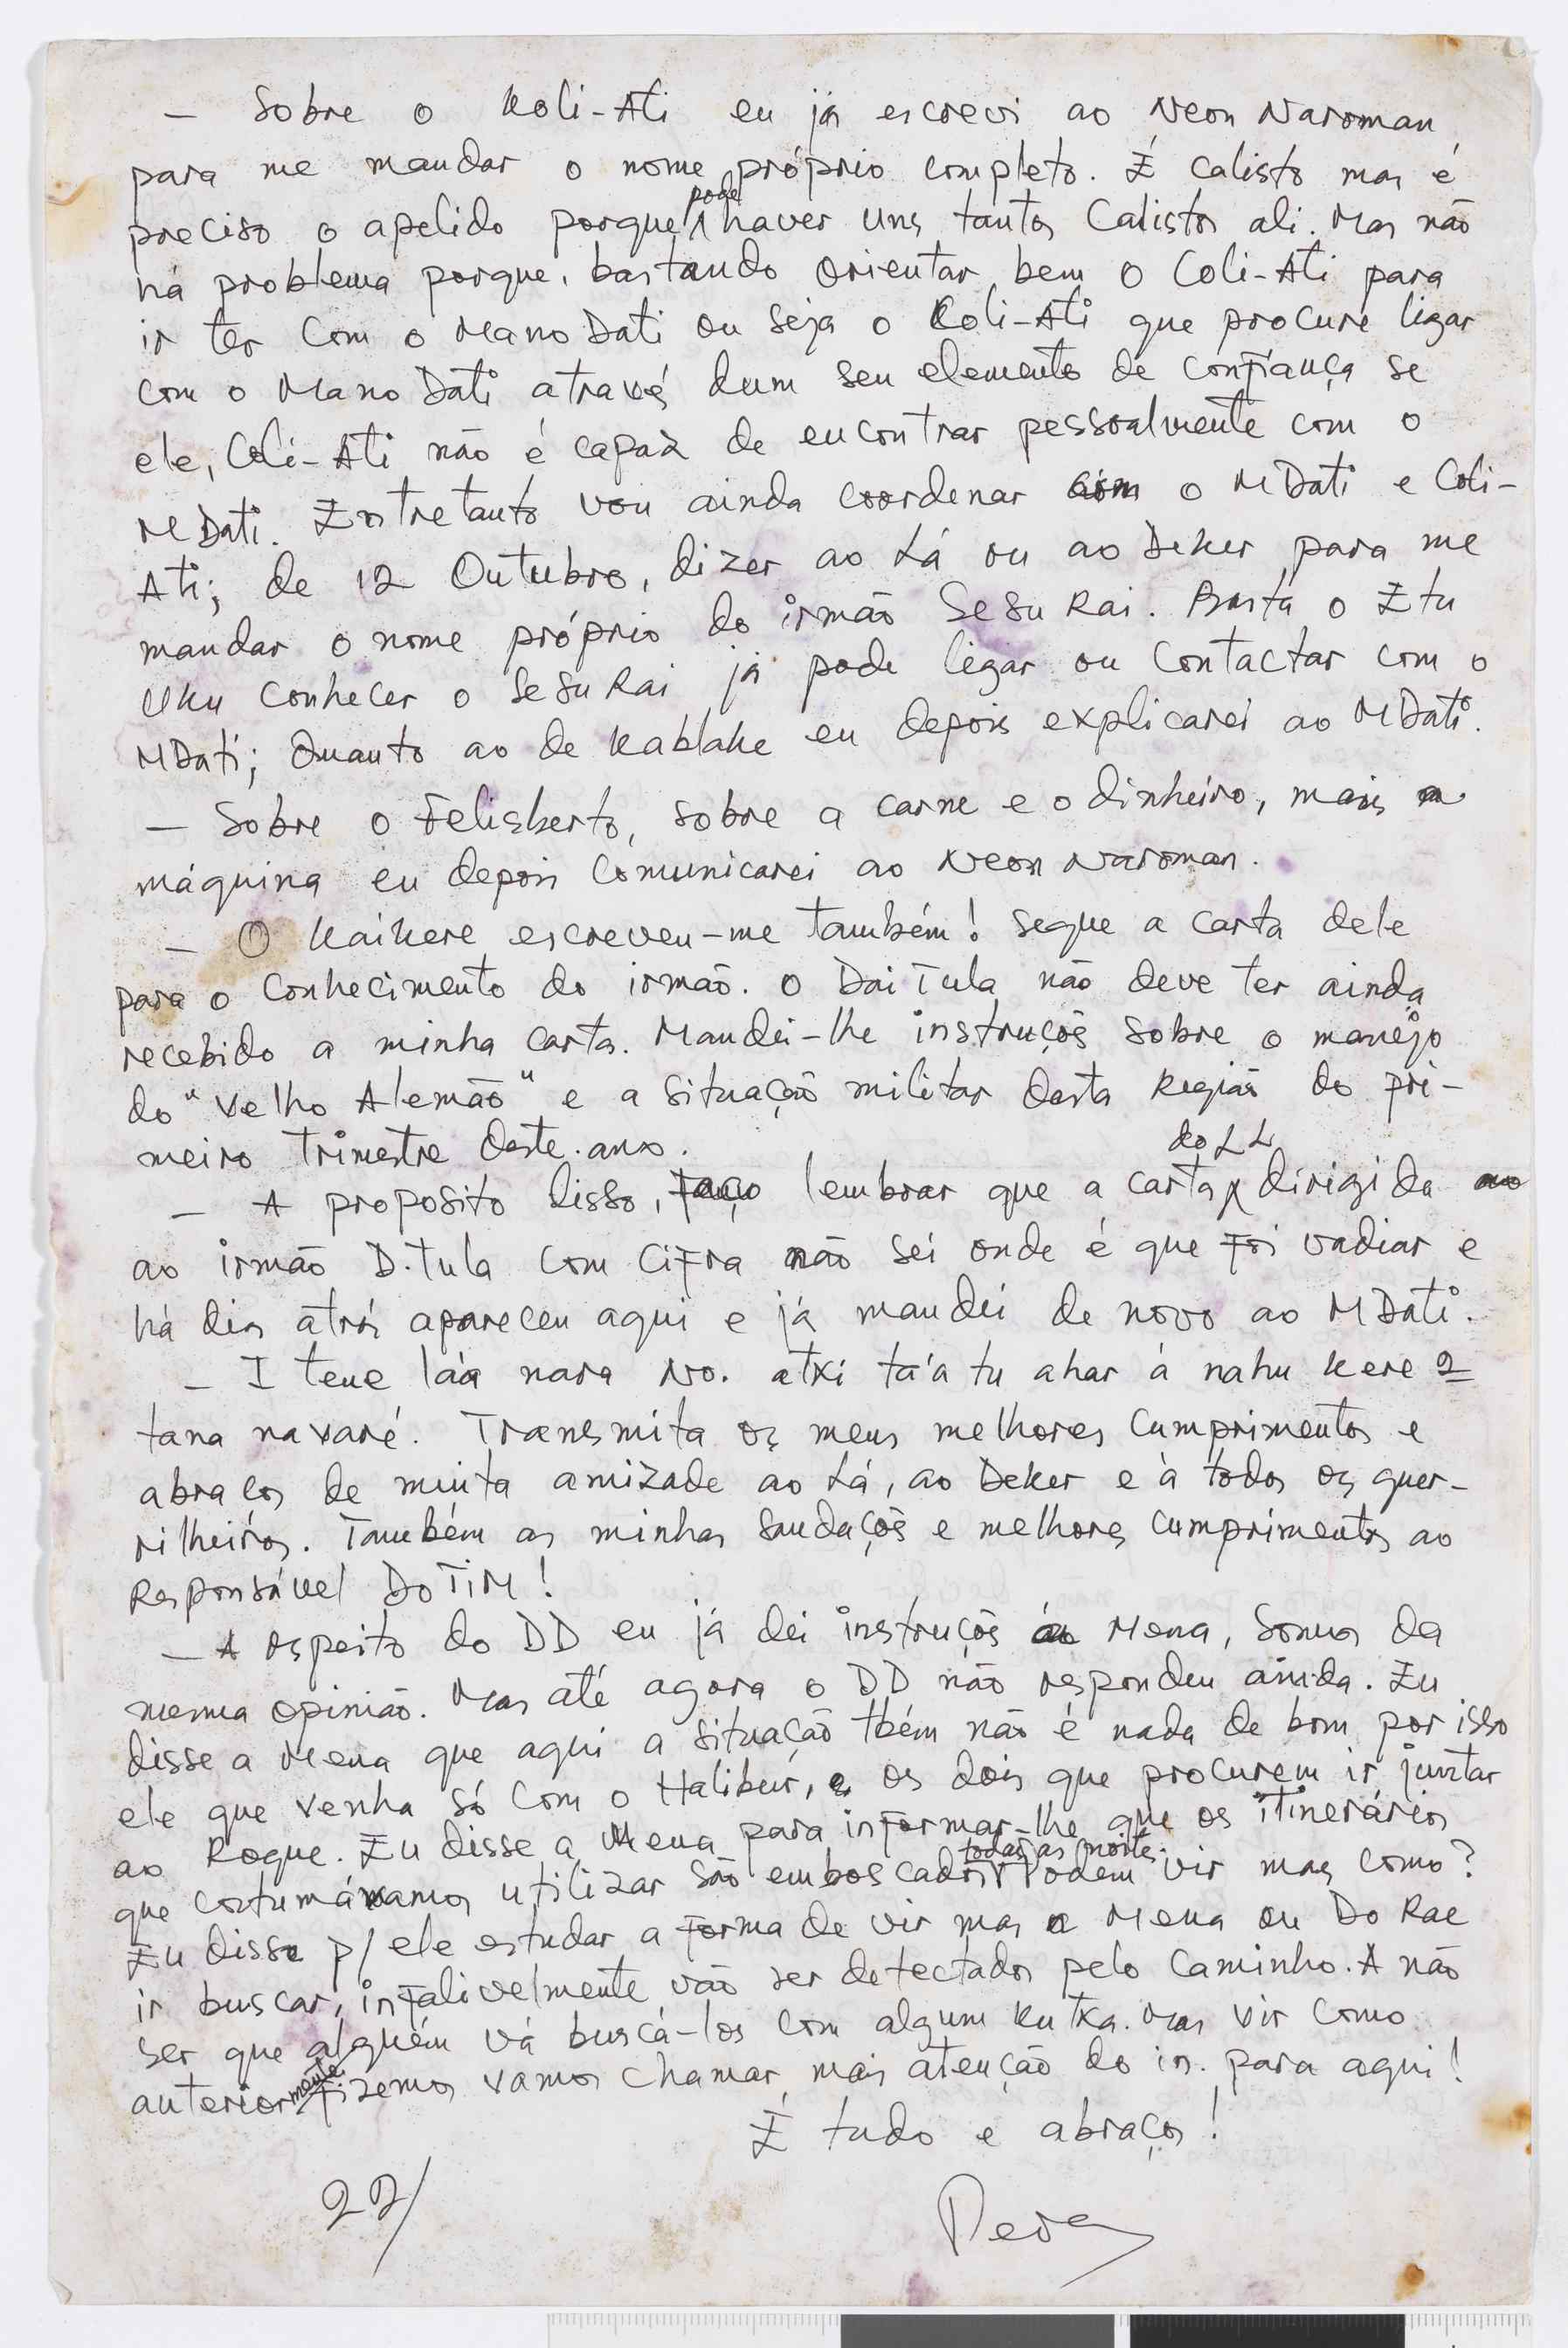 — Sobre o Koli-Ati eu já escrevi ao Neon Naroman
para me mandar o nome próprio completo. É Calisto mas é
preciso o apelido porque pode haver uns tantos Calistos ali. Mas não
há problema porque, bastando orientar bem o Coli-Ati para
ir ter com o Mano Dati ou seja o Koli-Ati que procure ligar
com o Mano Dati através dum seu elemento de confiança se
ele, Coli-Ati não é capaz de encontrar pessoalmente com o
MDati. Entretanto vou ainda coordenar com o MDati e Coli-
Ati; de 12 Outubro, dizer ao Lá ou ao Deker para me
mandar o nome próprio do irmão Sesu Rai. Basta o Etu
Uku conhecer o Sesu Rai já pode ligar ou contactar com o
MDati; Quanto ao de Kablake eu depois explicarei ao MDati.
— Sobre o Felisberto, sobre a carne e o dinheiro, mais a
máquina eu depois comunicarei ao Neon Naroman.
— O Kaikere escreveu-me também! Segue a carta dele
para o conhecimento do irmão. O Dai Tula não deve ter ainda
recebido a minha carta. Mandei-lhe instruçõs sobre o manejo
do "Velho Alemão" e a situação militar desta Região do pri-
meiro trimestre deste ano.
— A proposito disso, faço lembrar que a carta do LL dirigida
ao irmão D.Tula com cifra não sei onde é que foi vadiar e
há dias atrás apareceu aqui e já mandei de novo ao MDati.
— I teue láa nara No. atxi tá'a tu ahar á nahu kere 2
tana navaré. Transmita os meus melhores cumprimentos e
abraços de muita amizade ao Lá, ao Deker e à todos os guer-
rilheiros. Também as minhas saudaçõs e melhores cumprimentos ao
Responsável DoTiM!
— A respeito do DD eu já dei instruçõs á Mena, somos da
mesma opinião. Mas até agora o DD não respondeu ainda. Eu
disse a Mena que aqui a situação tbém não é nada de bom por isso
ele que venha só com o Halibur, e os dois que procurem ir juntar
ao Roque. Eu disse a Mena para informar-lhe que os itinerários
que costumávamos utilizar são emboscados todas as noites. Podem vir mas como?
Eu disse p/ ele estudar a forma de vir mas a Mena ou Do Rae
ir buscar, infalivelmente vão ser detectados pelo caminho. A não
ser que alguém vá buscá-los com algum kutxa. Mas vir como
anteriormente fizemos vamos chamar mais atenção do in. para aqui!
É tudo e abraços!
22/